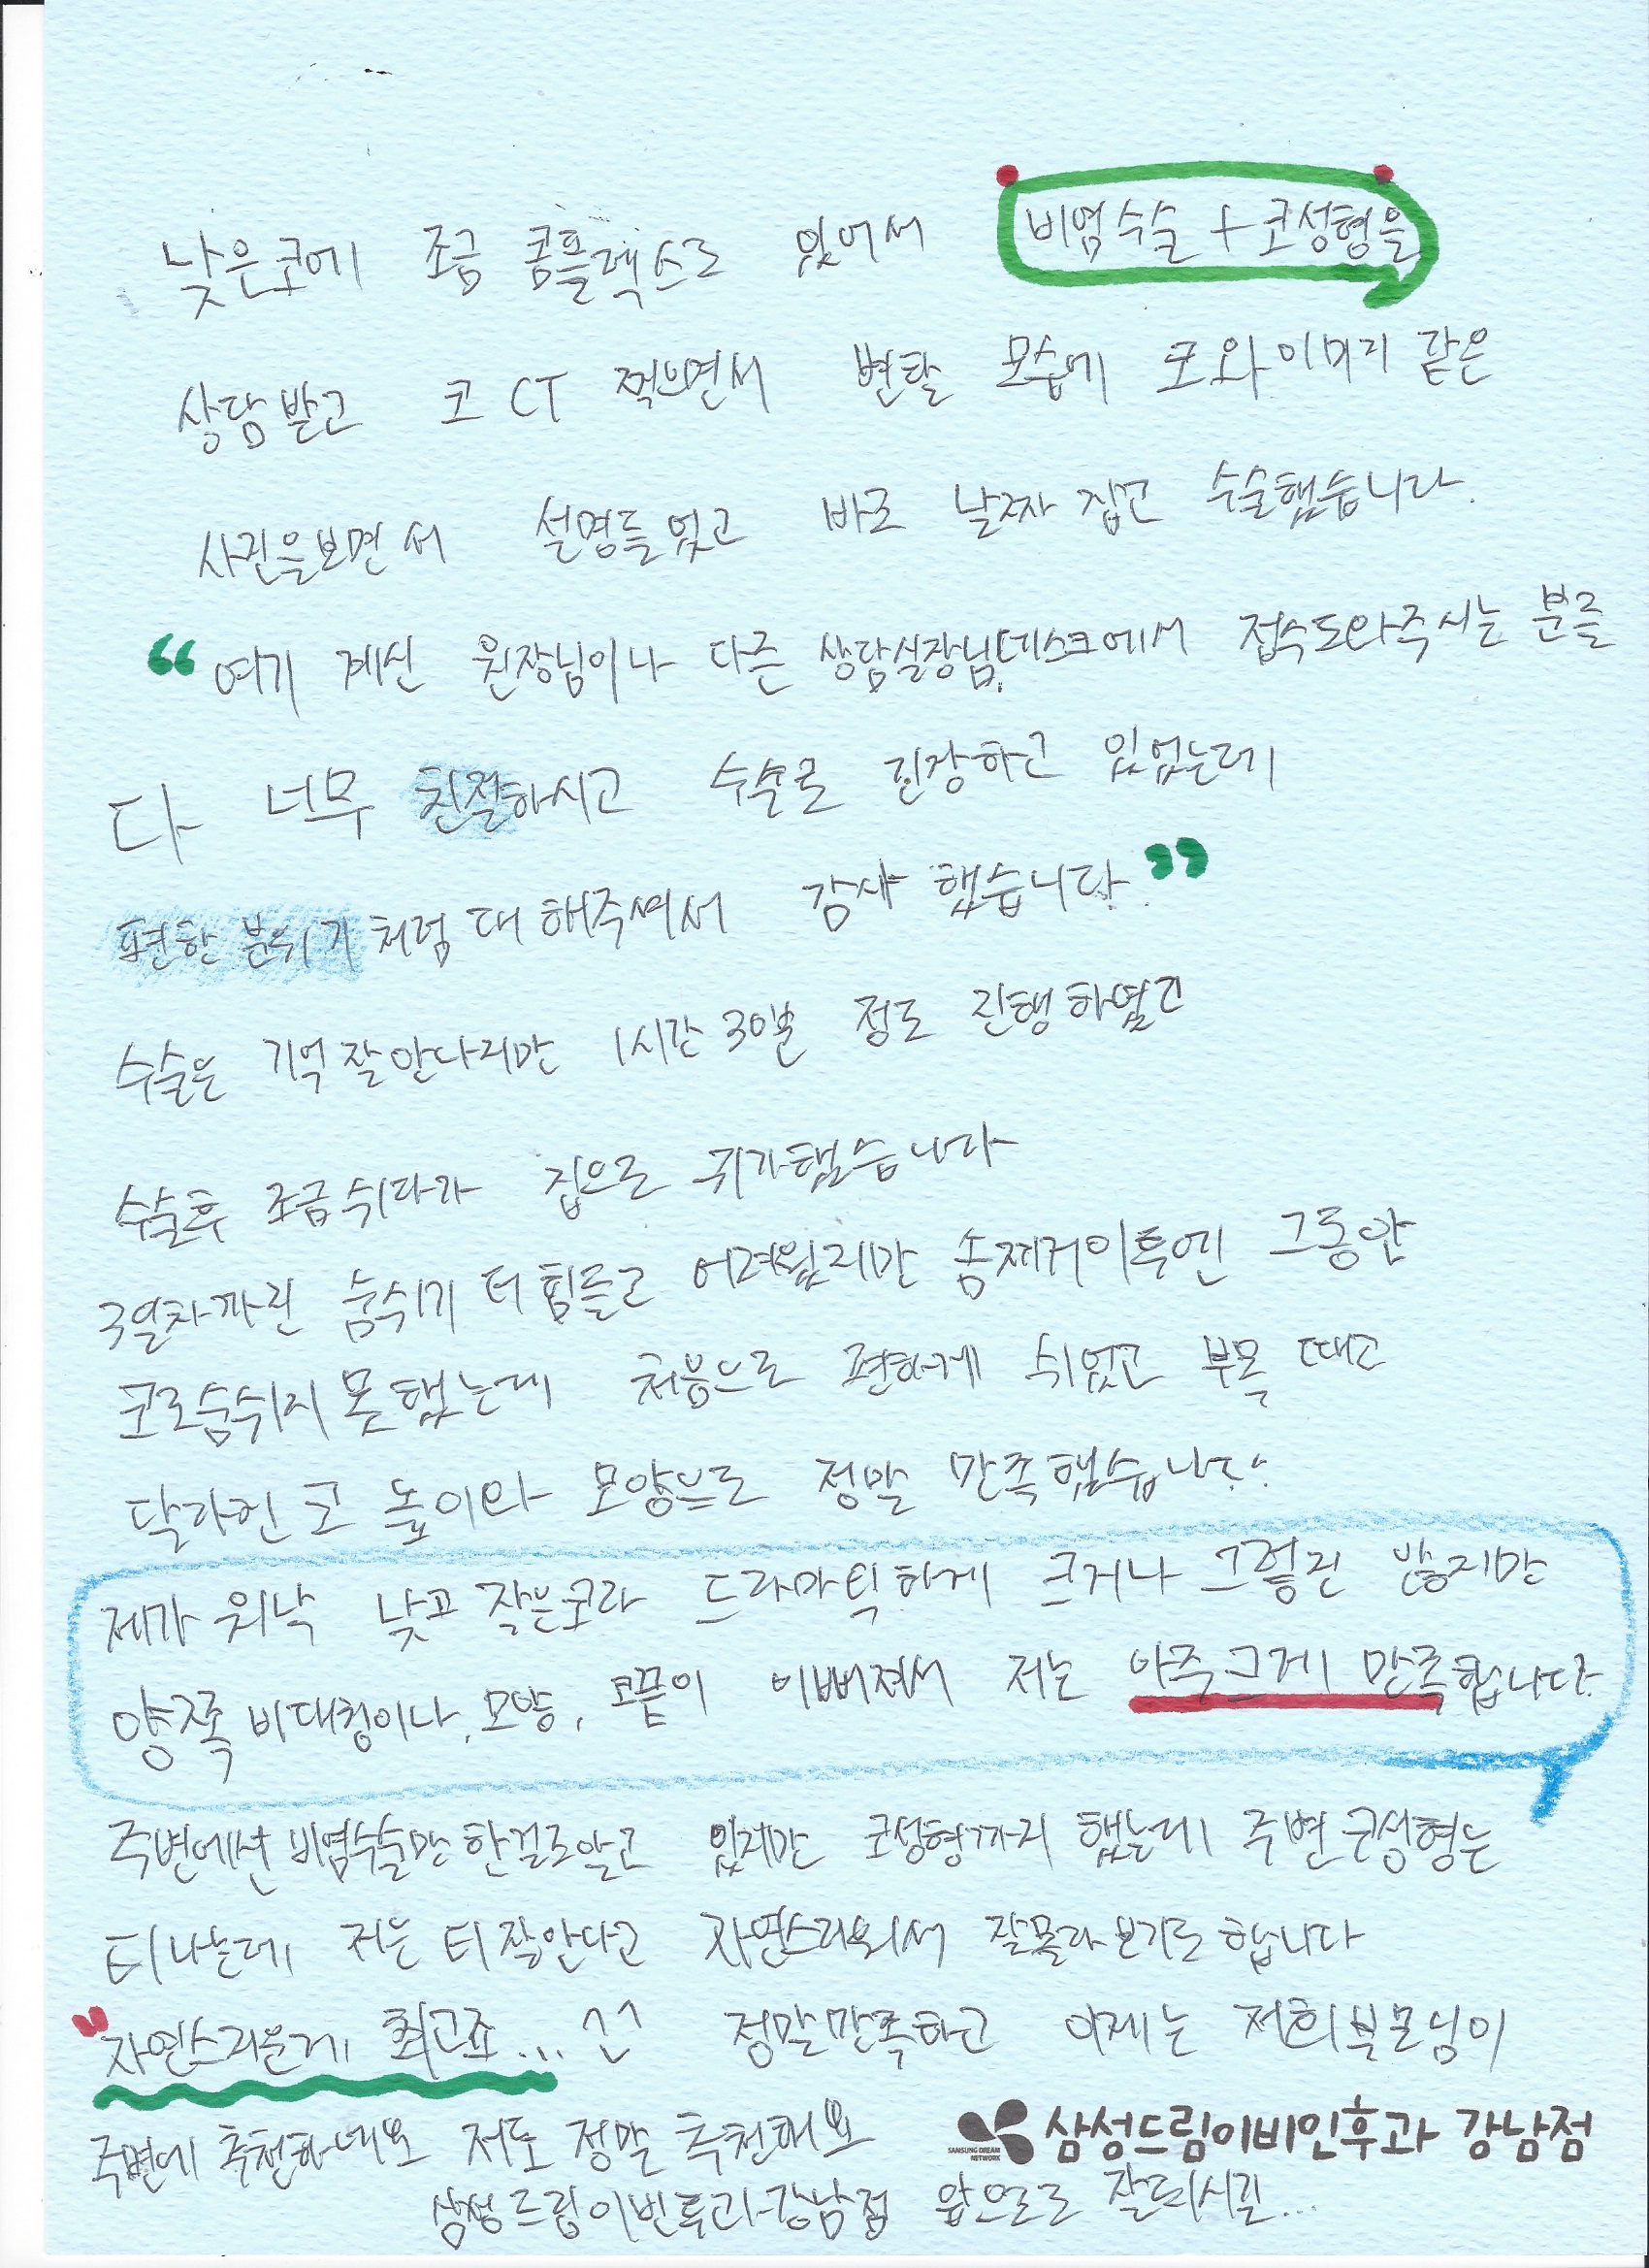 낮은코에 조금 콤플렉스로 있어서 비염수술 + 코성형을
상담받고 코 CT 찍으면서 변할 모습에 코와 이미지 같은
사진을보면서 설명들었고 바로 날짜 잡고 수술했습니다.
“여기 계신 원장님이나 다른 상담실장님, 데스크에서 접수도와주시는 분들
다 너무 친절하시고 수술로 긴장하고 있었는데
편한 분위기처럼 대해주셔서 감사했습니다.”
수술은 기억잘안나지만 1시간 30분 정도 진행하였고
수술후 조금쉬다가 집으로 귀가했습니다
3일차까진 숨쉬기 더 힘들고 어려웠지만 솜제거이후엔 그동안
코로숨쉬지 못했는데 처음으로 편하게 쉬었고 부목 떼고
달라진 코 높이와 모양으로 정말 만족했습니다.
제가 워낙 낮고 작은코라 드라마틱하게 크거나 그렇진 않지만
양쪽 비대칭이나, 모양, 코끝이 이뻐져서 저는 아주크게 만족합니다.
주변에선 비염수술만 한걸로알고 있지만 코성형까지 했는데 주변 코성형은
티나는데, 저는 티 잘안나고 자연스러워서 잘몰라보기도 합니다
"자연스러운게 최고죠... ^^ 정말만족하고 이제는 저희부모님이
주변에 추천하네요 저도 정말 추천해요
삼성드림이비인후과 강남점
SAMSUNG DREAM NETWORK
삼성드림이빈후과강남점 앞으로도 잘되시길...